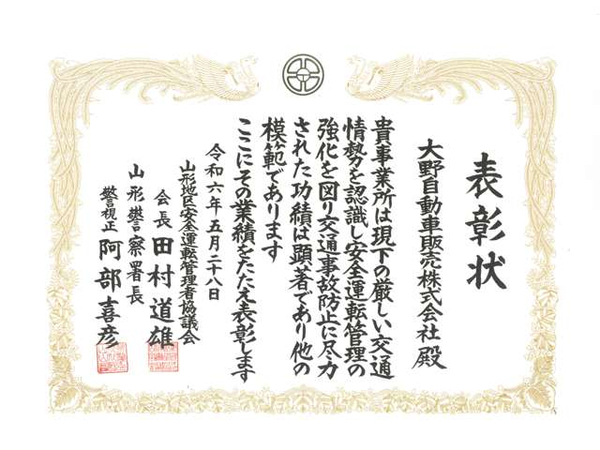 表彰状
大野自動車販売株式会社 殿
貴事業所は現下の厳しい交通
情勢を認識し安全運転管理の
強化を図り交通事故防止に尽力
された功績は顕著であり他の
模範であります
ここにその業績をたたえ表彰します
令和六年五月二十八日
山形地区安全運転管理者協議会
会長 田村道雄
山形警察署長
警視正 阿部喜彦